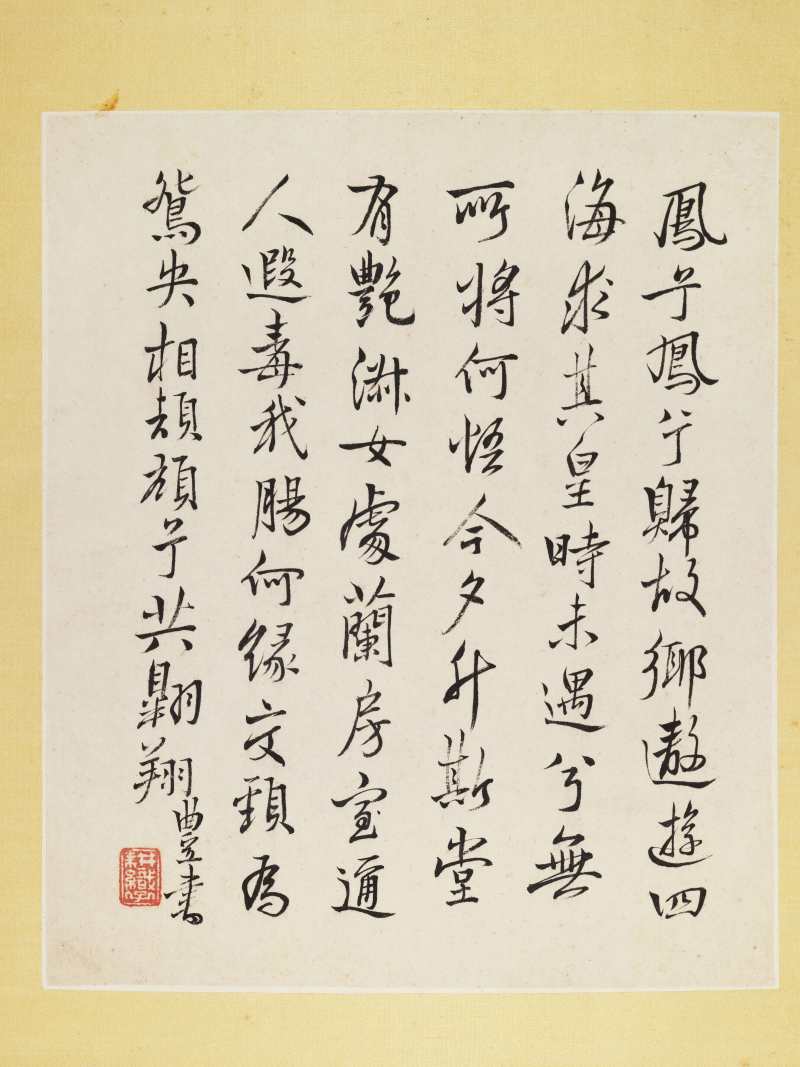 鳳兮鳳兮歸故鄉遨遊四
海求其皇時未遇兮無
所將何悟今夕升斯堂
有艷淑女處蘭房室邇
人遐毒我腸何緣交頸為
鴛央相頡頏兮共翱翔
豊書
耕織